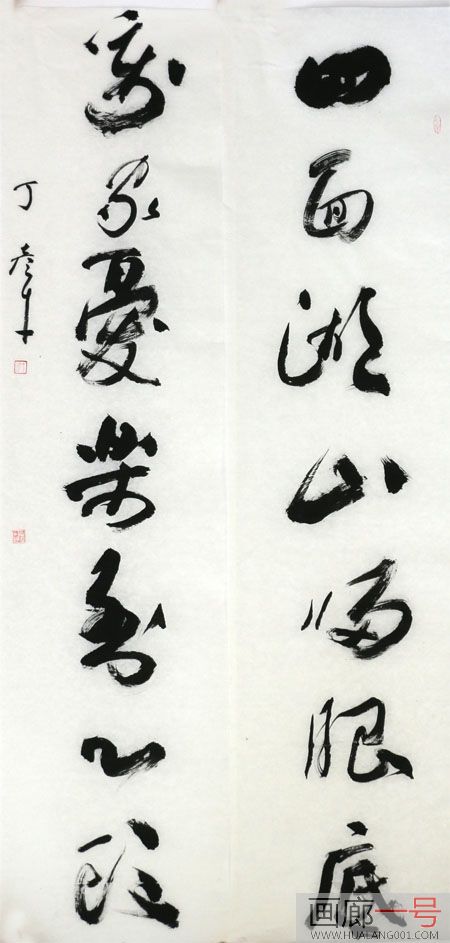 四面湖山归眼底
万家忧乐到心头
丁
画廊一号
WWW.HUALANG001.COM